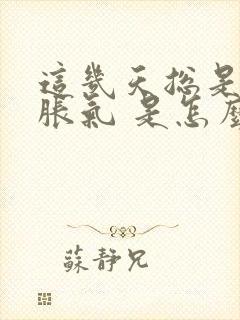 這幾天總是
脹氣 是怎麼
蘇靜兄